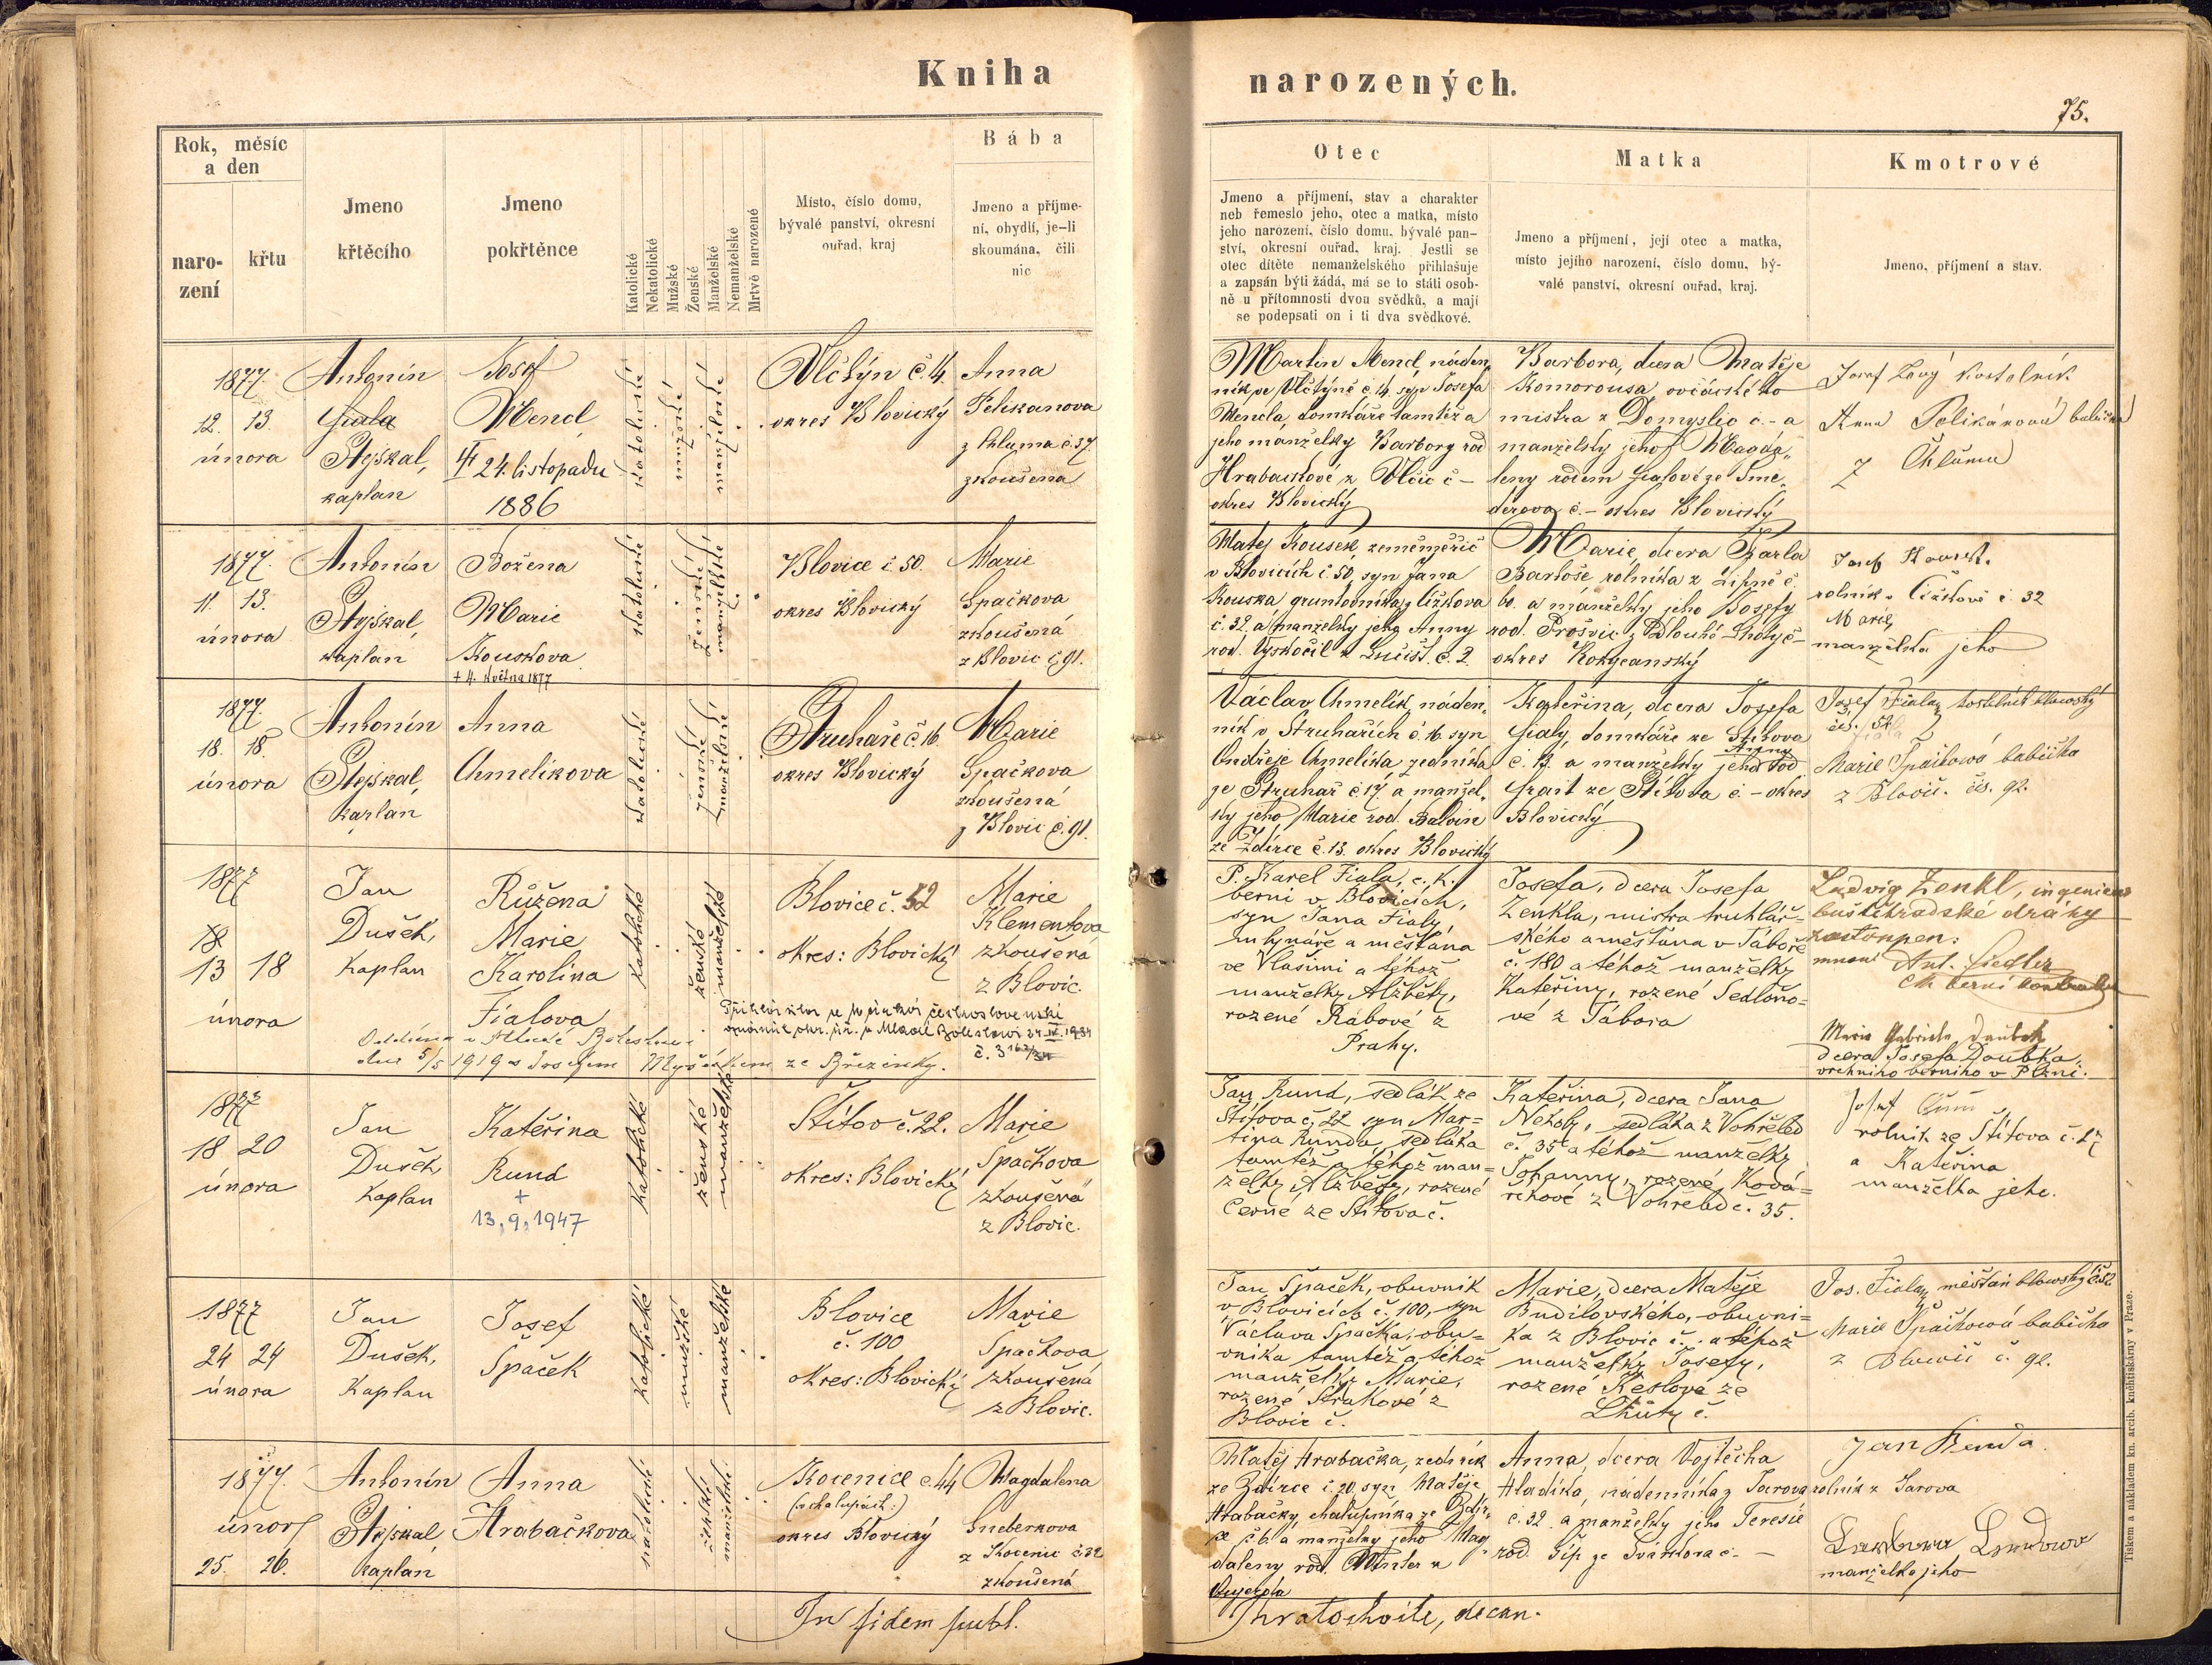 Kniha
narozených.
75.
Rok, měsíc
a den
naro-
zení
křtu
Jmeno
křtěcího
Jmeno
pokřtěnce
Katolické
Nekatolické
Mužské
Ženské
Manželské
Nemanželské
Mrtvě narozené
Místo, číslo domu,
bývalé panství, okresní
ouřad, kraj
Bába
Jmeno a příjme-
ní, obydlí, je-li
skoumána, čili
nic
Otec
Jmeno a příjmení, stav a charakter
neb řemeslo jeho, otec a matka, místo
jeho narození, číslo domu, bývalé pan-
ství, okresní ouřad, kraj. Jestli se
otec dítěte nemanželského přihlašuje
a zapsán býti žádá, má se to státi osob-
ně u přítomnosti dvou svědků, a mají
se podepsati on i ti dva svědkové.
Matka
Jmeno a příjmení, její otec a matka,
místo jejího narození, číslo domu, bý-
valé panství, okresní ouřad, kraj.
Kmotrové
Jmeno, příjmení a stav.
1877.
12. 13.
února
Antonín
Fiala
Stejskal,
kaplan
Josef
Mencl
24. listopadu
1886
katolické
mužské
manželské
Vlčtýn č. 14.
okres Blovický
Anna
Pelikanova
z Chluma č 37.
zkoušená
Martin Mencl, náden-
ník ve Vlčtýně č. 14. syn Josefa
Mencla, domkáře tamtéž a
jeho manželky Barbory rod
Hrabačkové z Vlčic č –
okres Blovický
Barbora, dcera Matěje
Komorousa, ovčáckého
mistra z Domyslic č. – a
manželky jeho Magda-
leny rodem Fialové ze
č. – okres Blovický
Josef
Anna Pelikánová babička
z Chlumu
1877.
11. 13.
února
Antonín
Stejskal,
kaplan
Božena
Marie
Kouskova
+ 4. Května 1877
katolické
ženské
manželské
Blovice č 50.
okres Blovický
Marie
Spačkova
zkoušená
z Blovic č 91.
Matěj Kousek, zeměměřič
v Blovicích č. 50, syn Jana
Kouska gruntovníka z Čížkova
č. 32. a manželky jeho Anny
rod. Vyskočil z č. 2.
Marie, dcera Karla
Bartoše rolníka z Lipně č
10. a manželky jeho Josefy
rod. z Dlouhé Lhoty č –
okres Rokycanský
Josef Kousek.
rolník v Čížkově č. 32
Marie,
manželka jeho
1877.
18. 18.
února
Antonín
Stejskal,
kaplan
Anna
Chmelíkova
katolické
ženské
manželské
Struhaře č. 16.
okres Blovický
Marie
Spačkova
zkoušená
z Blovic č. 91.
Václav Chmelík, náden-
ník v Struhařích č 16. syn
Ondřeje Chmelíka zedníka
ze Struhař č 17. a manžel-
ky jeho Marie rod. Balvín
ze Zdirce č. 13. okres Blovický
Kateřina, dcera Josefa
Fialy, domkáře ze Štítova
č. 13. a manželky jeho Anny rod
ze Štítova č – okres
Blovický
Josef Fiala, kostelník blowský
čís. 52
Marie Špačková babička
z Blovic. čís. 92.
1877
13 18
února
Jan
Dušek,
Kaplan
Růžena
Marie
Karolina
Fialova
katolické
ženské
manželské
Blovice č. 52
okres: Blovický
Marie
Klementova
zkoušená
z Blovic.
Oddána v Mladé Boleslavi
dne 5/5 1919 s Josefem ze Březinky.
č. 3
P. Karel Fiala, c. k.
berní v Blovicích,
syn Jana Fialy,
mlynáře a měšťana
ve Vlašimi a téhož
manželky Alžběty,
rozené Rábové z
Prahy.
Josefa, dcera Josefa
Zenkla, mistra truhlář-
ského a měšťana v Táboře
č. 180 a téhož manželky
Kateřiny, rozené Sedloňo-
vé z Tábora
Ludvig Zenkl, ingenieur
buštěhradské dráhy
Ant. Fiedler
Marie Gabriela Daubek
dcera Josefa Doubka,
vrchního berního v Plzni.
1877
18 20
února
Jan
Dušek
Kaplan
Kateřina
Rund
+
13. 9. 1947
katolické
ženské
manželské
Štítov č. 22.
okres: Blovický
Marie
Spačkova
zkoušená
z Blovic.
Jan Rund, sedlák ze
Štítova č. 22 syn Mar-
tina Runda, sedláka
tamtéž a téhož man-
želky Alžběty, rozené
Černé ze Štítova č.
Kateřina, dcera Jana
Nekoly, sedláka z Vohřeled
č. 35 a téhož manželky
Johanny, rozené Ková-
říkové z Vohřeled č. 35.
Josef
rolník ze Štítova č. 27
a Kateřina
manželka jeho.
1877
24 24
února
Jan
Dušek,
Kaplan
Josef
Spaček
katolické
mužské
manželské
Blovice
č. 100
okres: Blovický
Marie
Spačkova
zkoušená
z Blovic.
Jan Spaček, obuvník
v Blovicích č. 100, syn
Václava Spačka, obu-
vníka tamtéž a téhož
manželky Marie,
rozené Strakové z
Blovic č.
Marie, dcera Matěje
Budilovského, obuvní-
ka z Blovic č. a téhož
manželky Josefy,
rozené Keslové ze
Lhůty č.
Jos. Fiala, měšťan blowský
Marie Špačková babička
z Blowic č. 92.
1877.
únor
25. 26.
Antonín
Stejskal,
kaplan
Anna
Hrabačkova
katolické
manželské
Kocenice č. 44
(v chalupách:)
okres Blovický
Magdalena
z Kocenic č 32
zkoušená
Matěj Hrabačka, zedník
ze Zdirce č. 20, syn Matěje
Hrabačky, chalupníka ze Zdir-
ce č. 6. a manželky jeho Mag-
daleny rod. Winter z
Anna, dcera Vojtěcha
Hladíka, nádenníka z Jarova
č. 32. a manželky jeho Teresie
rod. –
Jan
rolník z Jarova
manželka jeho
In fidem publ.
decan.
Tiskem a nákladem kn. arcib. knihtiskárny v Praze.